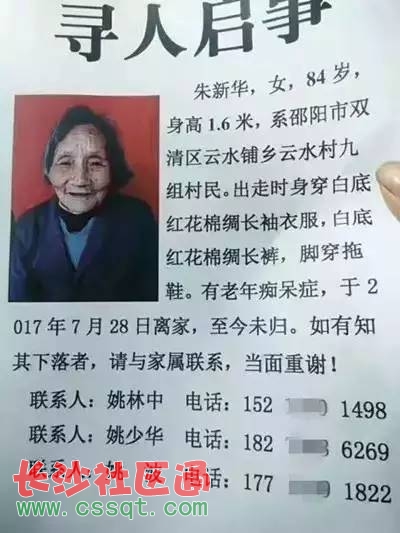 寻人启事
朱新华，女，84岁，
身高1.6米，系邵阳市双
清区云水铺乡云水村九
组村民。出走时身穿白底
红花棉绸长袖衣服，白底
红花棉绸长裤，脚穿拖
鞋。有老年痴呆症，于2
017年7月28日离家，至今未归。如有知
其下落者，请与家属联系，当面重谢！
联系人：姚林中 电话：152 1498
联系人：姚少华 电话：182 6269
联系人：姚 波 电话：177 1822
长沙社区通
www.cssqt.com